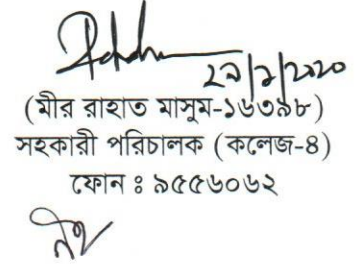 ২৯/১/২০২০
(মীর রাহাত মাসুম-১৬৩৯৮)
সহকারী পরিচালক (কলেজ-৪)
ফোন ঃ ৯৫৫৬০৬২